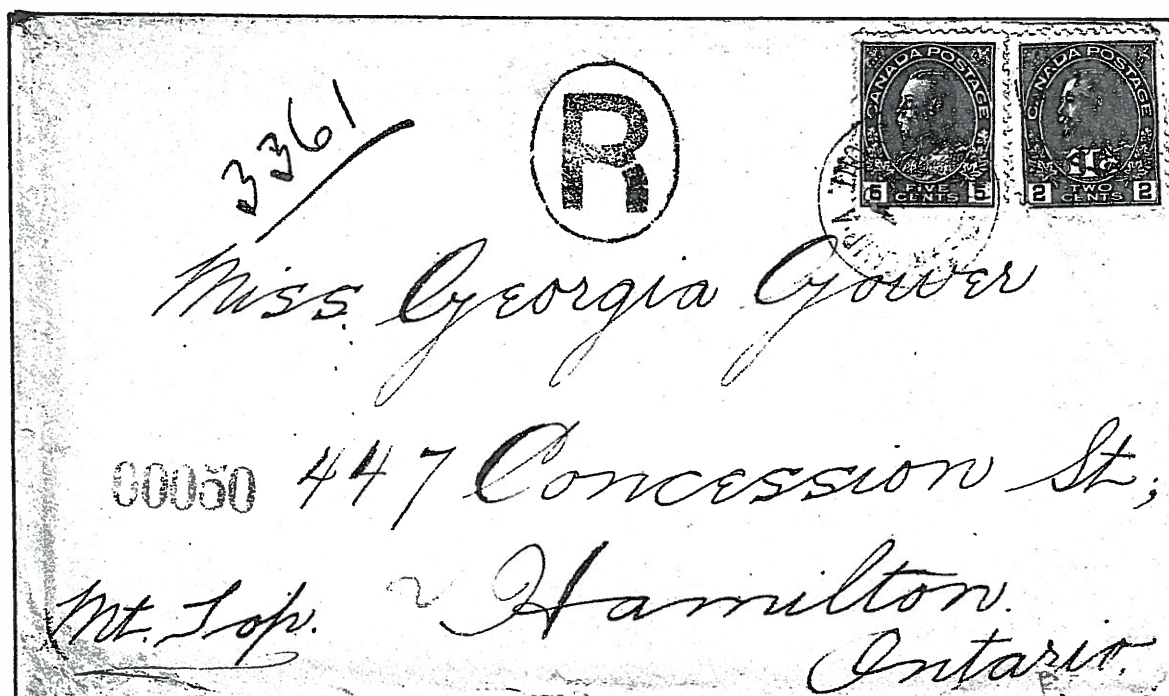 3361
R
CANADA POSTAGE
5 FIVE CENTS 5
CANADA POSTAGE
2 TWO CENTS 2
Miss. Georgia Gower
00050 447 Concession St;
Mt. Top. Hamilton.
Ontario.